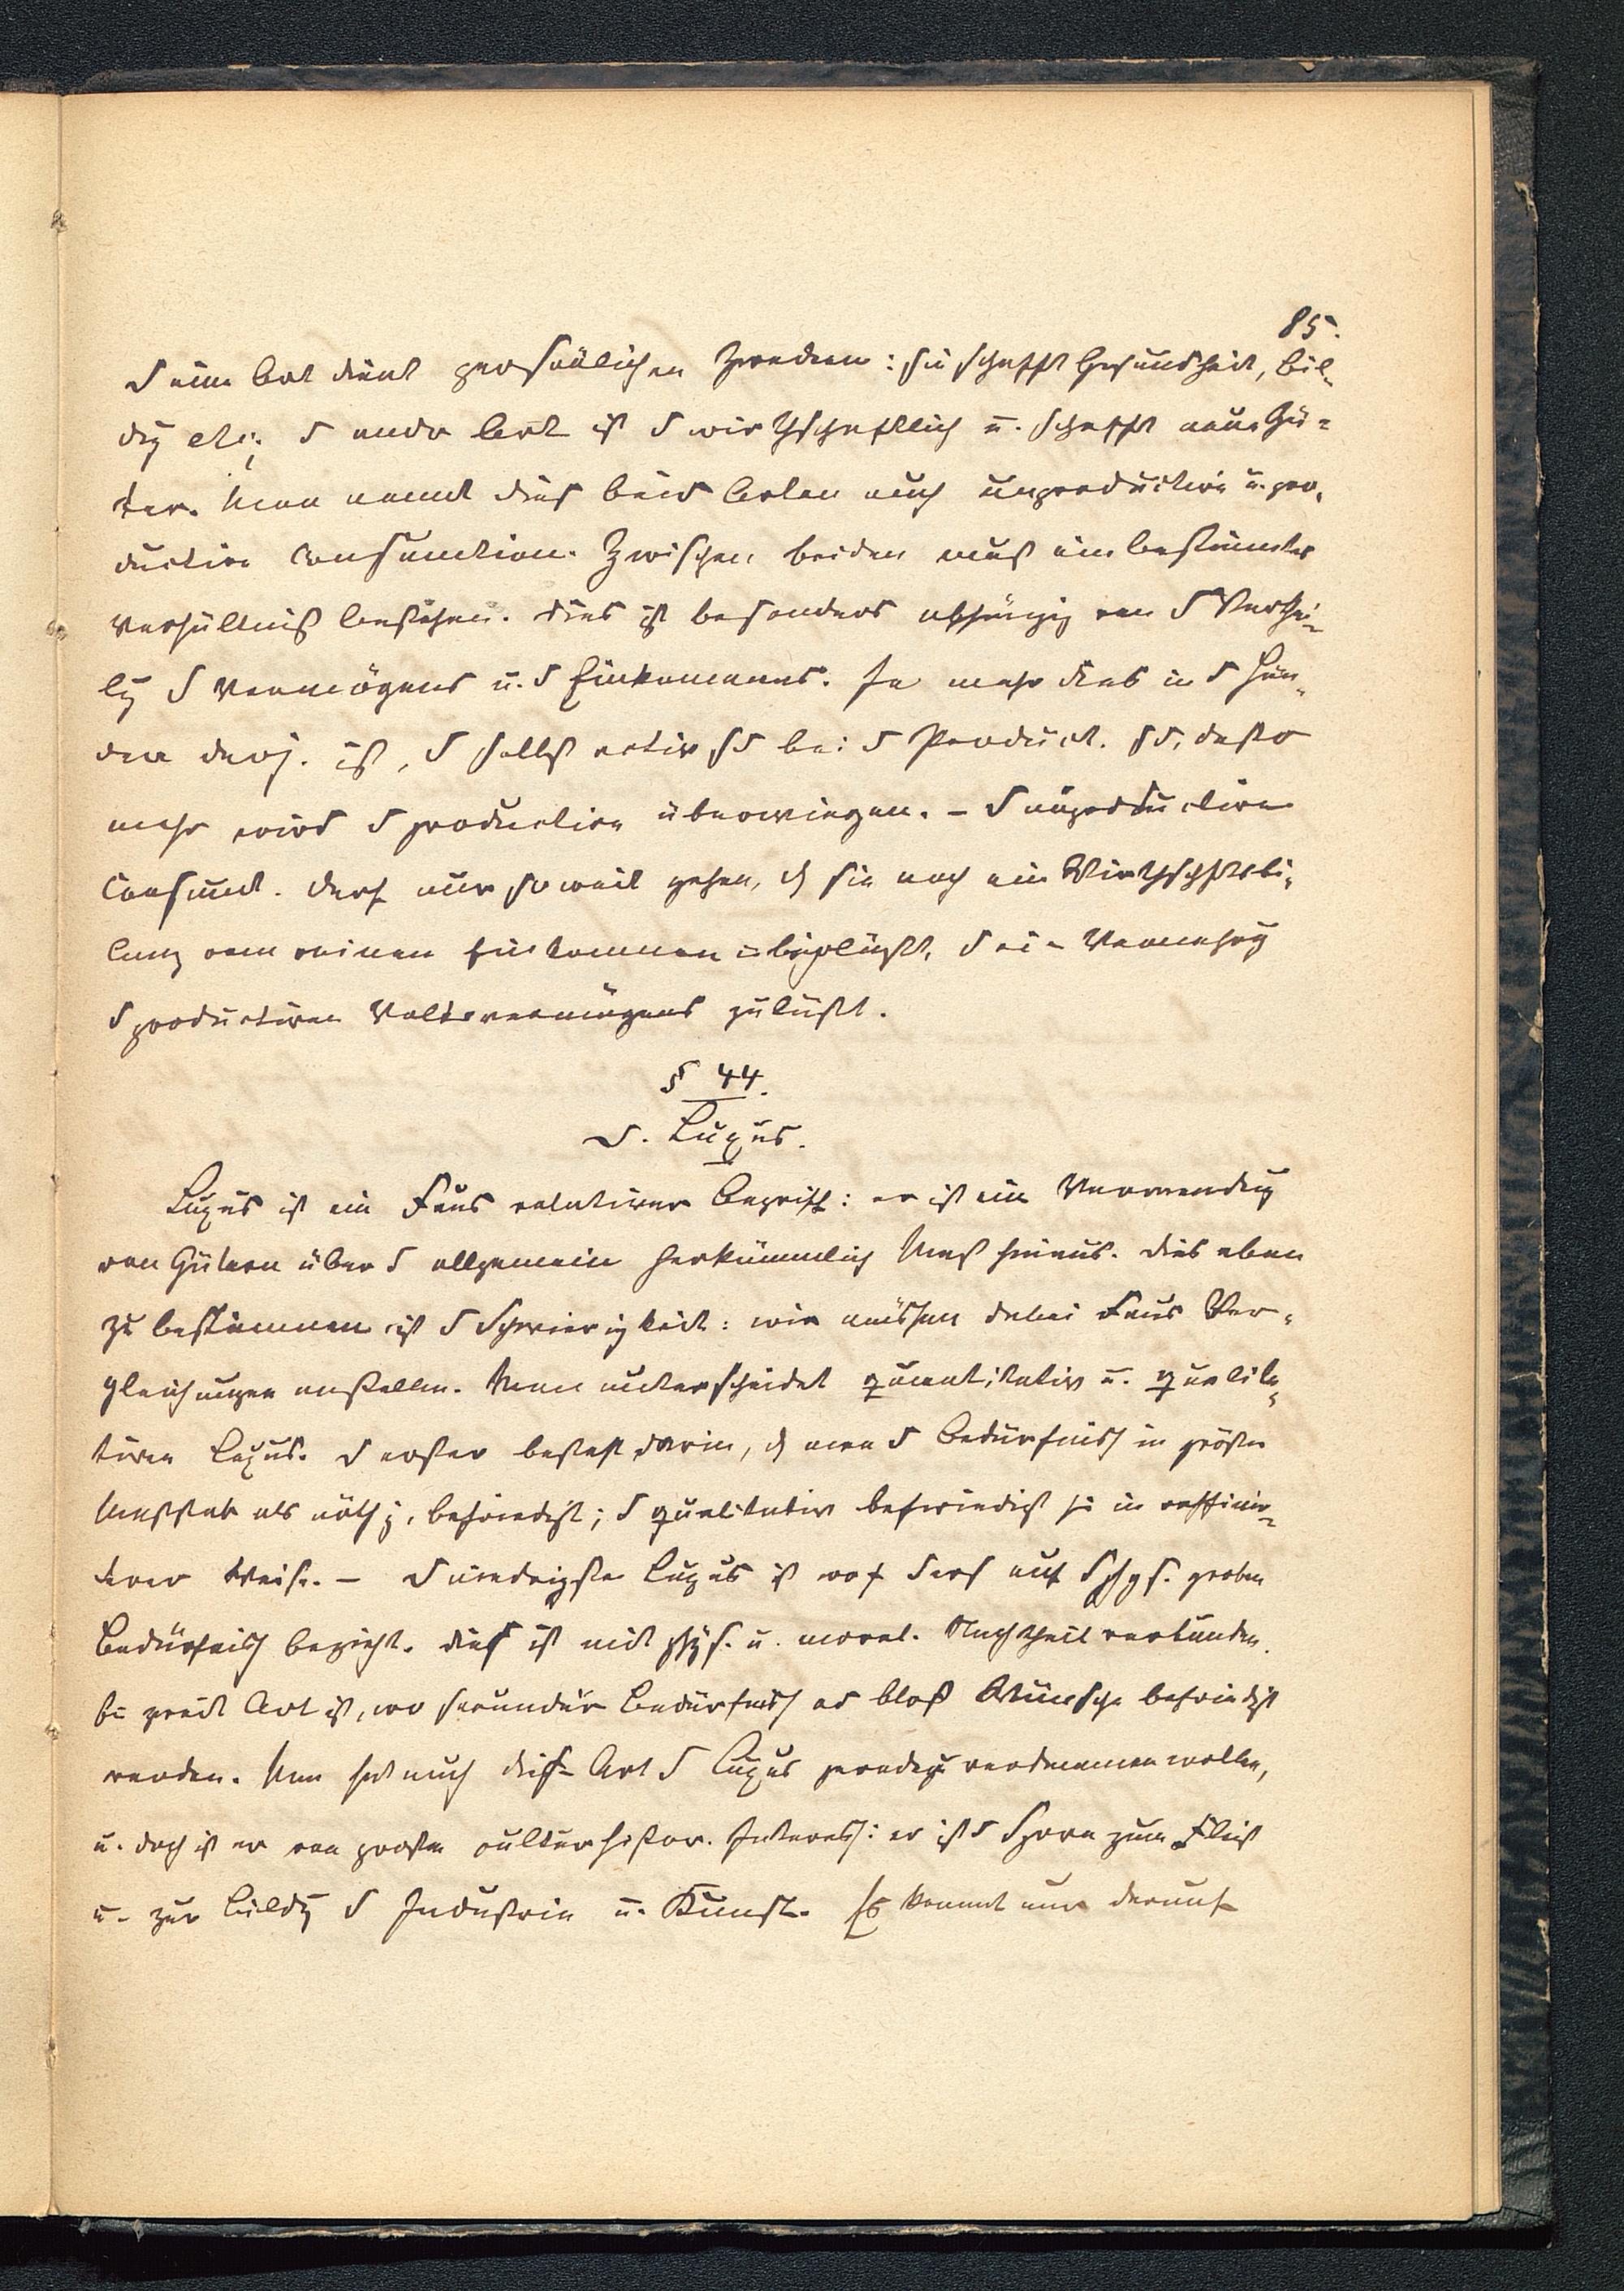 85.
D eine Art dient persönlichen Zwecken: sie schafft Gesundheit, Bil-
dg etc; d andr Art ist d wirthschaftlich u. schafft neue Gü-
ter. Man nennt dies beid Arten auch unproductive u. pro-
ductive Consumtion. Zwischen beiden muß ein bestimmtes
Verhältniß bestehen. Dies ist besonders abhängig von d Verthei-
lg d Vermögens u. d Einkommens. Je mehr dies in d Hän-
den derj. ist, d selbst activ sd bei d Product. sd, desto
mehr wird d productive überwiegen. – D unproductive
Consumt. darf nur so weit gehen, d sie noch ein
vom reinen Einkommen läßt, d ei- Vermehrg
d productiven Volksvermögens zuläßt.
§ 44.
D. Luxus.
Luxus ist ein relativer Begriff: er ist ein Verwendg
von Gütern über d allgemein herkömmlich Maß hinaus. Dies eben
zu bestimmen ist d Schwierigkeit: wir müssen dabei Ver-
gleichungen anstellen. Man unterscheidet quantitativ u. qualita-
tiven Luxus. D erster besteht darin, d man d Bedürfniss in größer
Maßstab als nöthg, befriedigt; d qualitativ befriedigt sie in raffinir-
terer Weise. – D niedrigste Luxus ist auf d phys. groben
Bedürfniss bezieht. Dies ist mit phys. u. moral. Nachtheil verbunden.
Art ist, wo secundär Bedürfniss od bloß Wünsche befriedigt
werden. Man hat auch dies- Art d Luxus geradezu verdammen wollen,
u. doch ist er von großem culturhistor. Interess: er ist d Sporn zum Fleiß
u. zur Bildg d Industrie u. Kunst. Es kommt nur darauf